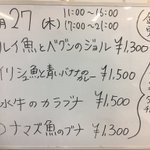 月27(木) 11:00~15:00
17:00~21:00
ルイ魚とペグンのジョル ¥1,300
イリシュ魚と青いバナナカレー ¥1,500
水牛のカラブナ ¥1,500
ナマズ魚のブナ ¥1,300